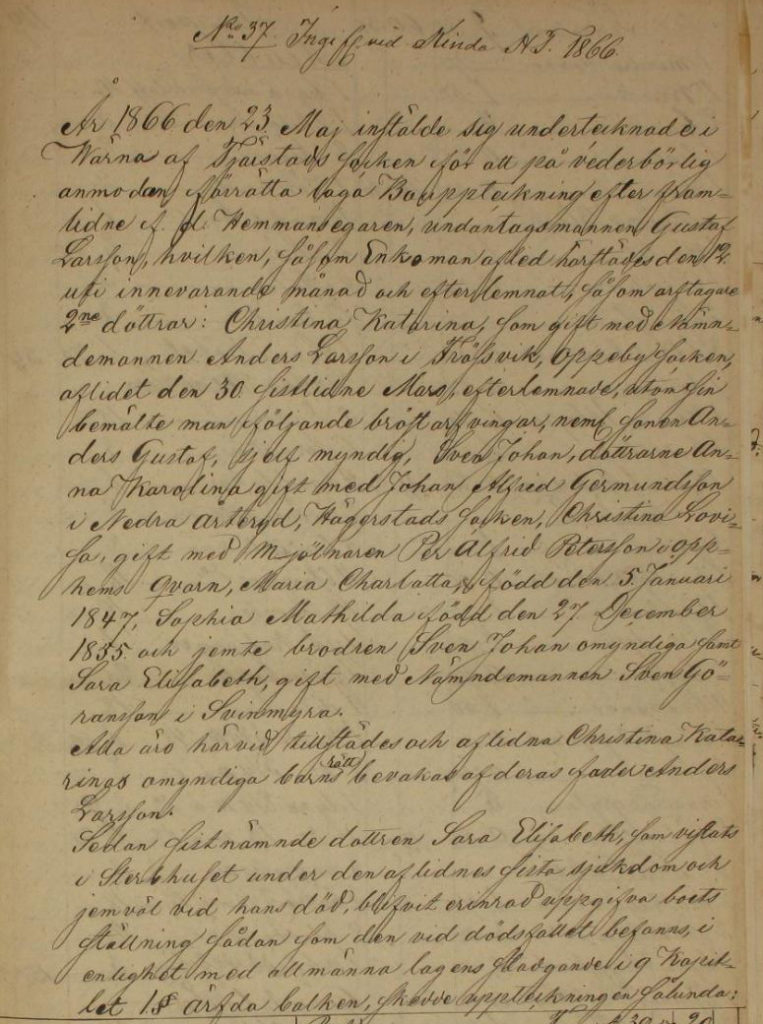 No 37. Ingif. vid Kinda H.T. 1866.
År 1866 den 23 Maj instälde sig undertecknade i
Wärna af Tjärstads socken för att på vederbörlig
anmodan förrätta laga Bouppteckning efter fram-
lidne f. d. Hemmansegaren, undantagsmannen Gustaf
Larsson, hvilken, såsom Enkeman afled härstädes den 12
uti innevarande månad och efterlemnat, såsom arftagare
2ne döttrar: Christina Katarina, som gift med Nämn-
demannen Anders Larsson i Trössvik, Oppeby socken,
aflidet den 30 sistlidne Mars, efterlemnade, utom sin
bemälte man följande bröstarfvingar, neml. sonen An-
ders Gustaf, sjelf myndig, Sven Johan, döttrarne An-
na Karolina gift med Johan Alfred Germundsson
i Nedra Ärteryd, Hägerstads socken, Christina Lovi-
sa, gift med Mjölnaren Per Alfrid Petersson i Opp-
hems qvarn, Maria Charlatta, född den 5 Januari
1847, Sophia Mathilda född den 27 December
1855 och jemte brodren Sven Johan omyndiga samt
Sara Elisabeth, gift med Nämndemannen Sven Gö-
ransson i Svinmyra.
Alla äro härvid tillstädes och aflidna Christina Kata-
rinas omyndiga barns rätt bevakas af deras fader Anders
Larsson.
Sedan sistnämnde dottren Sara Elisabeth, som vistats
i Sterbhuset under den aflidnes sista sjukdom och
jemväl vid hans död, blifvit erinrad uppgifva boets
ställning sådan som den vid dödsfallet befanns, i
enlighet med allmänna lagens stadgande i 9 Kapit-
let 1§ ärfda balken, skedde uppteckningen sålunda: